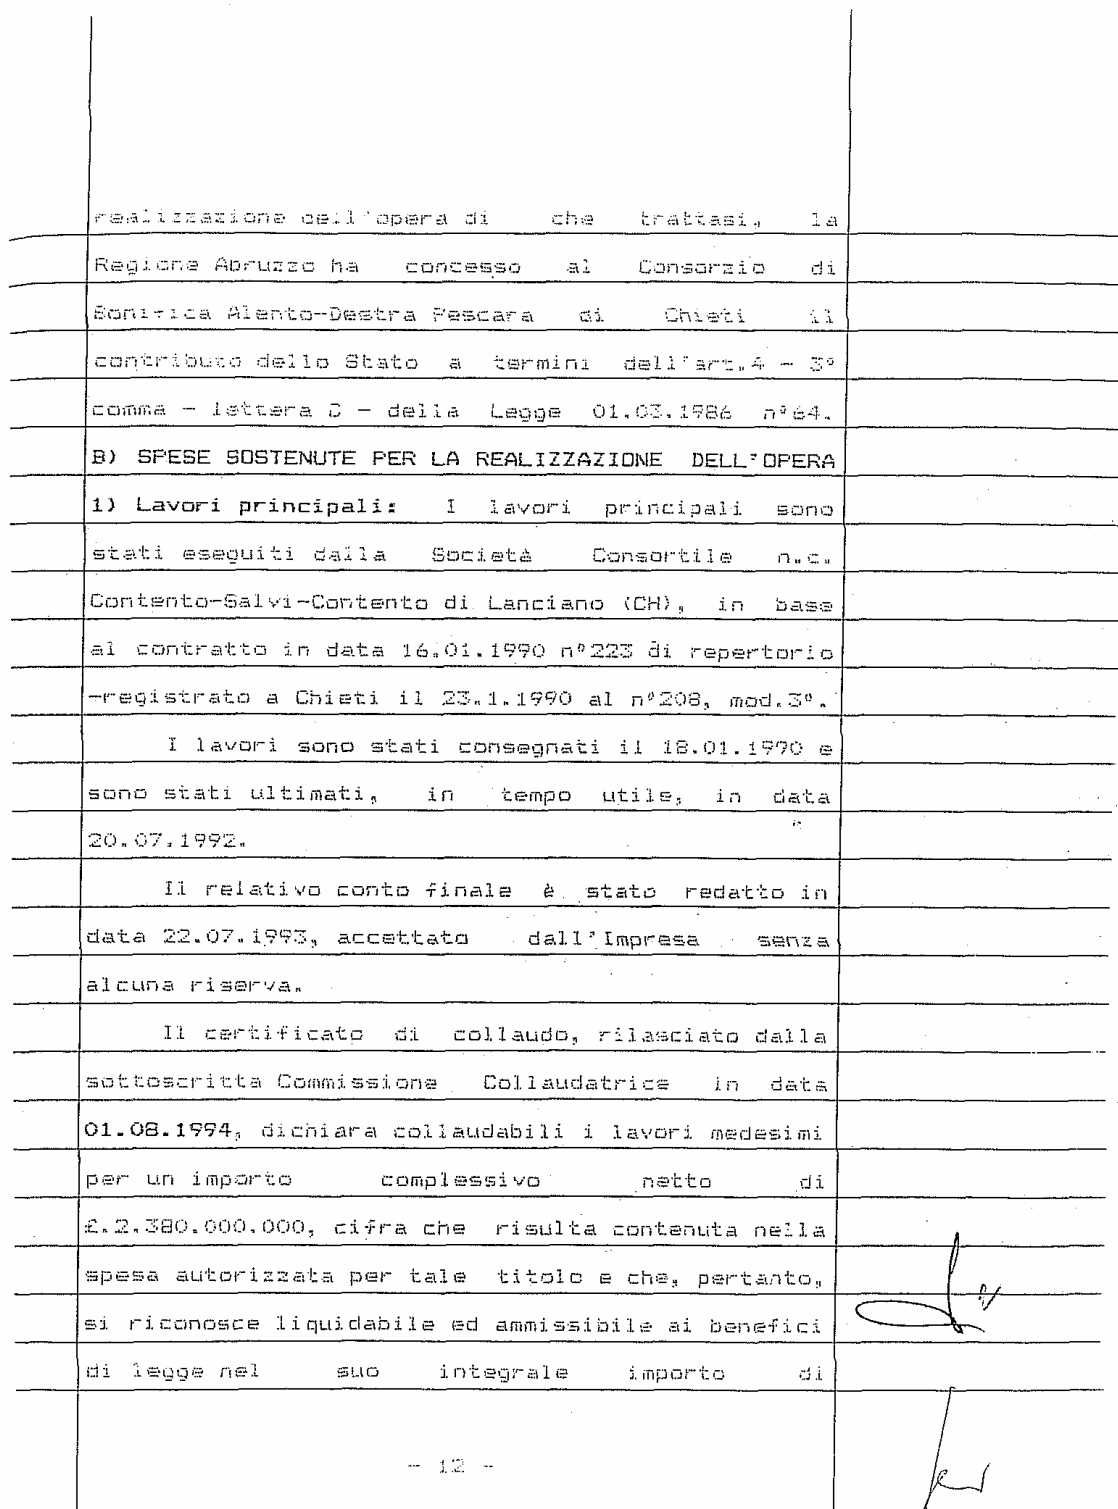 realizzazione dell'opera di che trattasi, la
Regione Abruzzo ha concesso al Consorzio di
Bonifica Alento-Destra Pescara di Chieti il
contributo dello Stato a termini dell'art.4 - 3°
comma - lettera D - della Legge 01.03.1986 n°64.
B) SPESE SOSTENUTE PER LA REALIZZAZIONE DELL'OPERA
1) Lavori principali: I lavori principali sono
stati eseguiti dalla Società Consortile n.c.
Contento-Salvi-Contento di Lanciano (CH), in base
al contratto in data 16.01.1990 n°223 di repertorio
-registrato a Chieti il 23.1.1990 al n°208, mod.3°.
I lavori sono stati consegnati il 18.01.1990 e
sono stati ultimati, in tempo utile, in data
20.07.1992.
Il relativo conto finale è stato redatto in
data 22.07.1993, accettato dall'Impresa senza
alcuna riserva.
Il certificato di collaudo, rilasciato dalla
sottoscritta Commissione Collaudatrice in data
01.08.1994, dichiara collaudabili i lavori medesimi
per un importo complessivo netto di
£.2.380.000.000, cifra che risulta contenuta nella
spesa autorizzata per tale titolo e che, pertanto,
si riconosce liquidabile ed ammissibile ai benefici
di legge nel suo integrale importo di
- 12 -